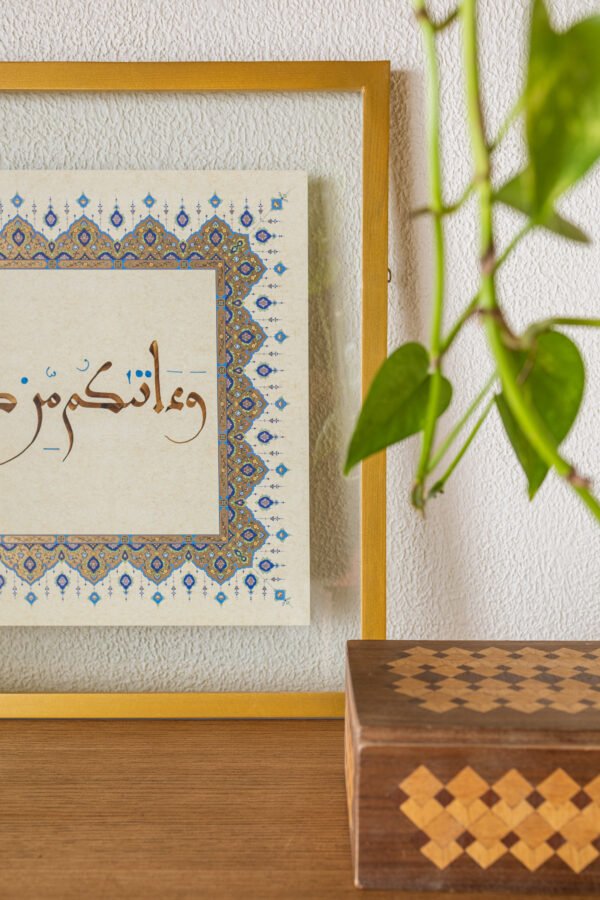 وَءَاتَىٰكُم مِّن